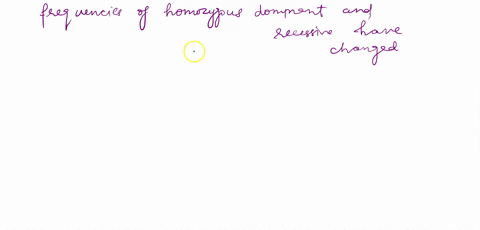 frequencies of homozypus domment and
recessive have
changed